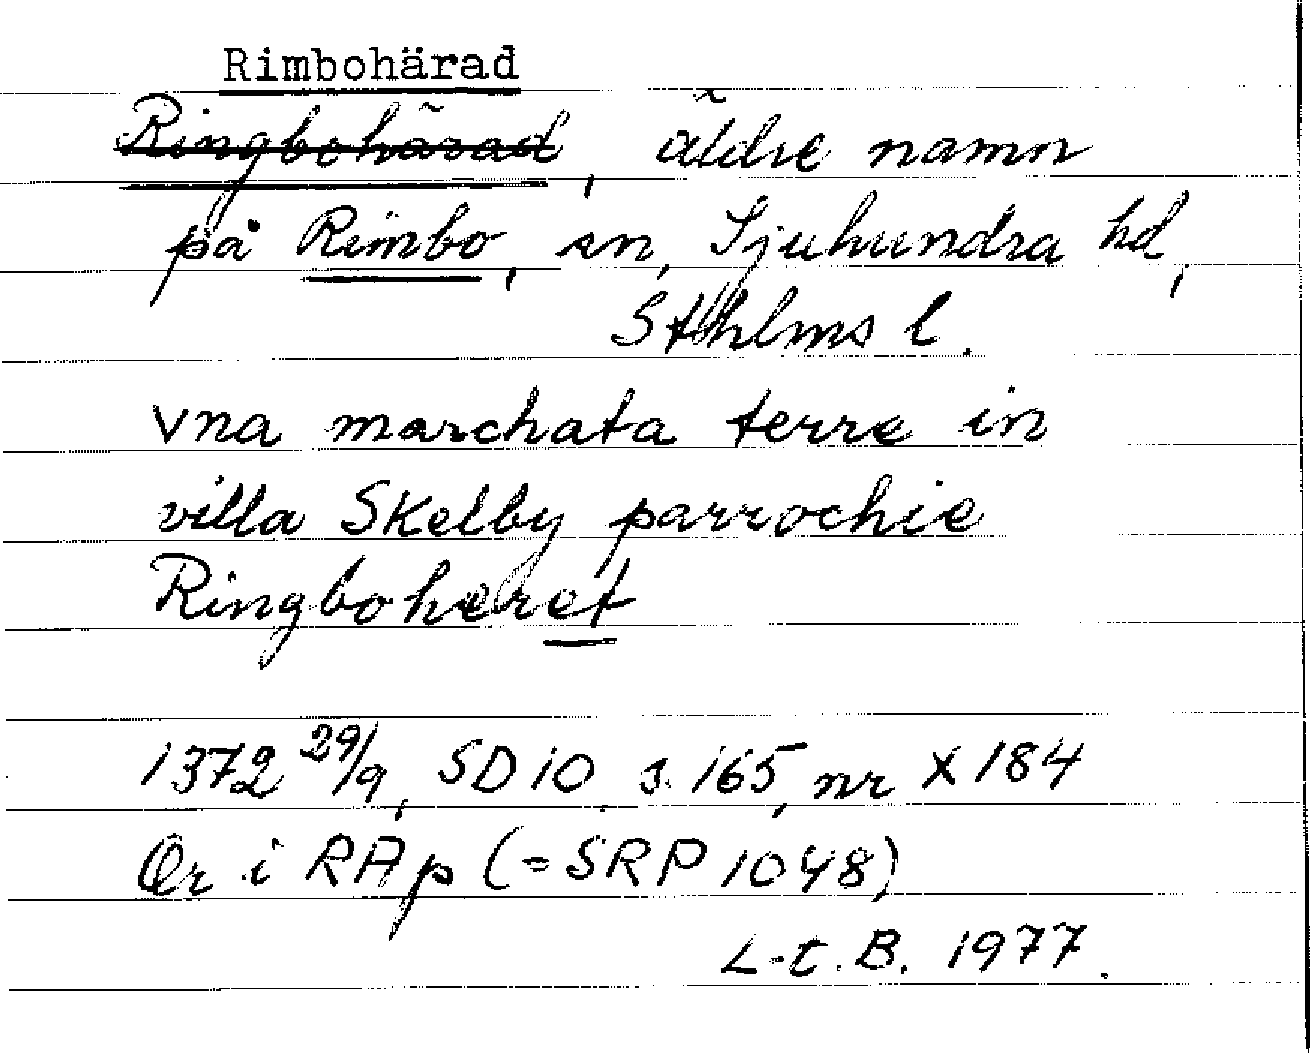 Rimbohärad
Ringbohärad, äldre namn
på Rimbo, sn, Sjuhundra hd,
Sthlms l.
vna marchata terre in
villa Skelby parrochie
Ringboheret
1372 29/9, SD 10 s. 165, nr X 184
Or i RAp (=SRP 1048)
L-t. B. 1977.